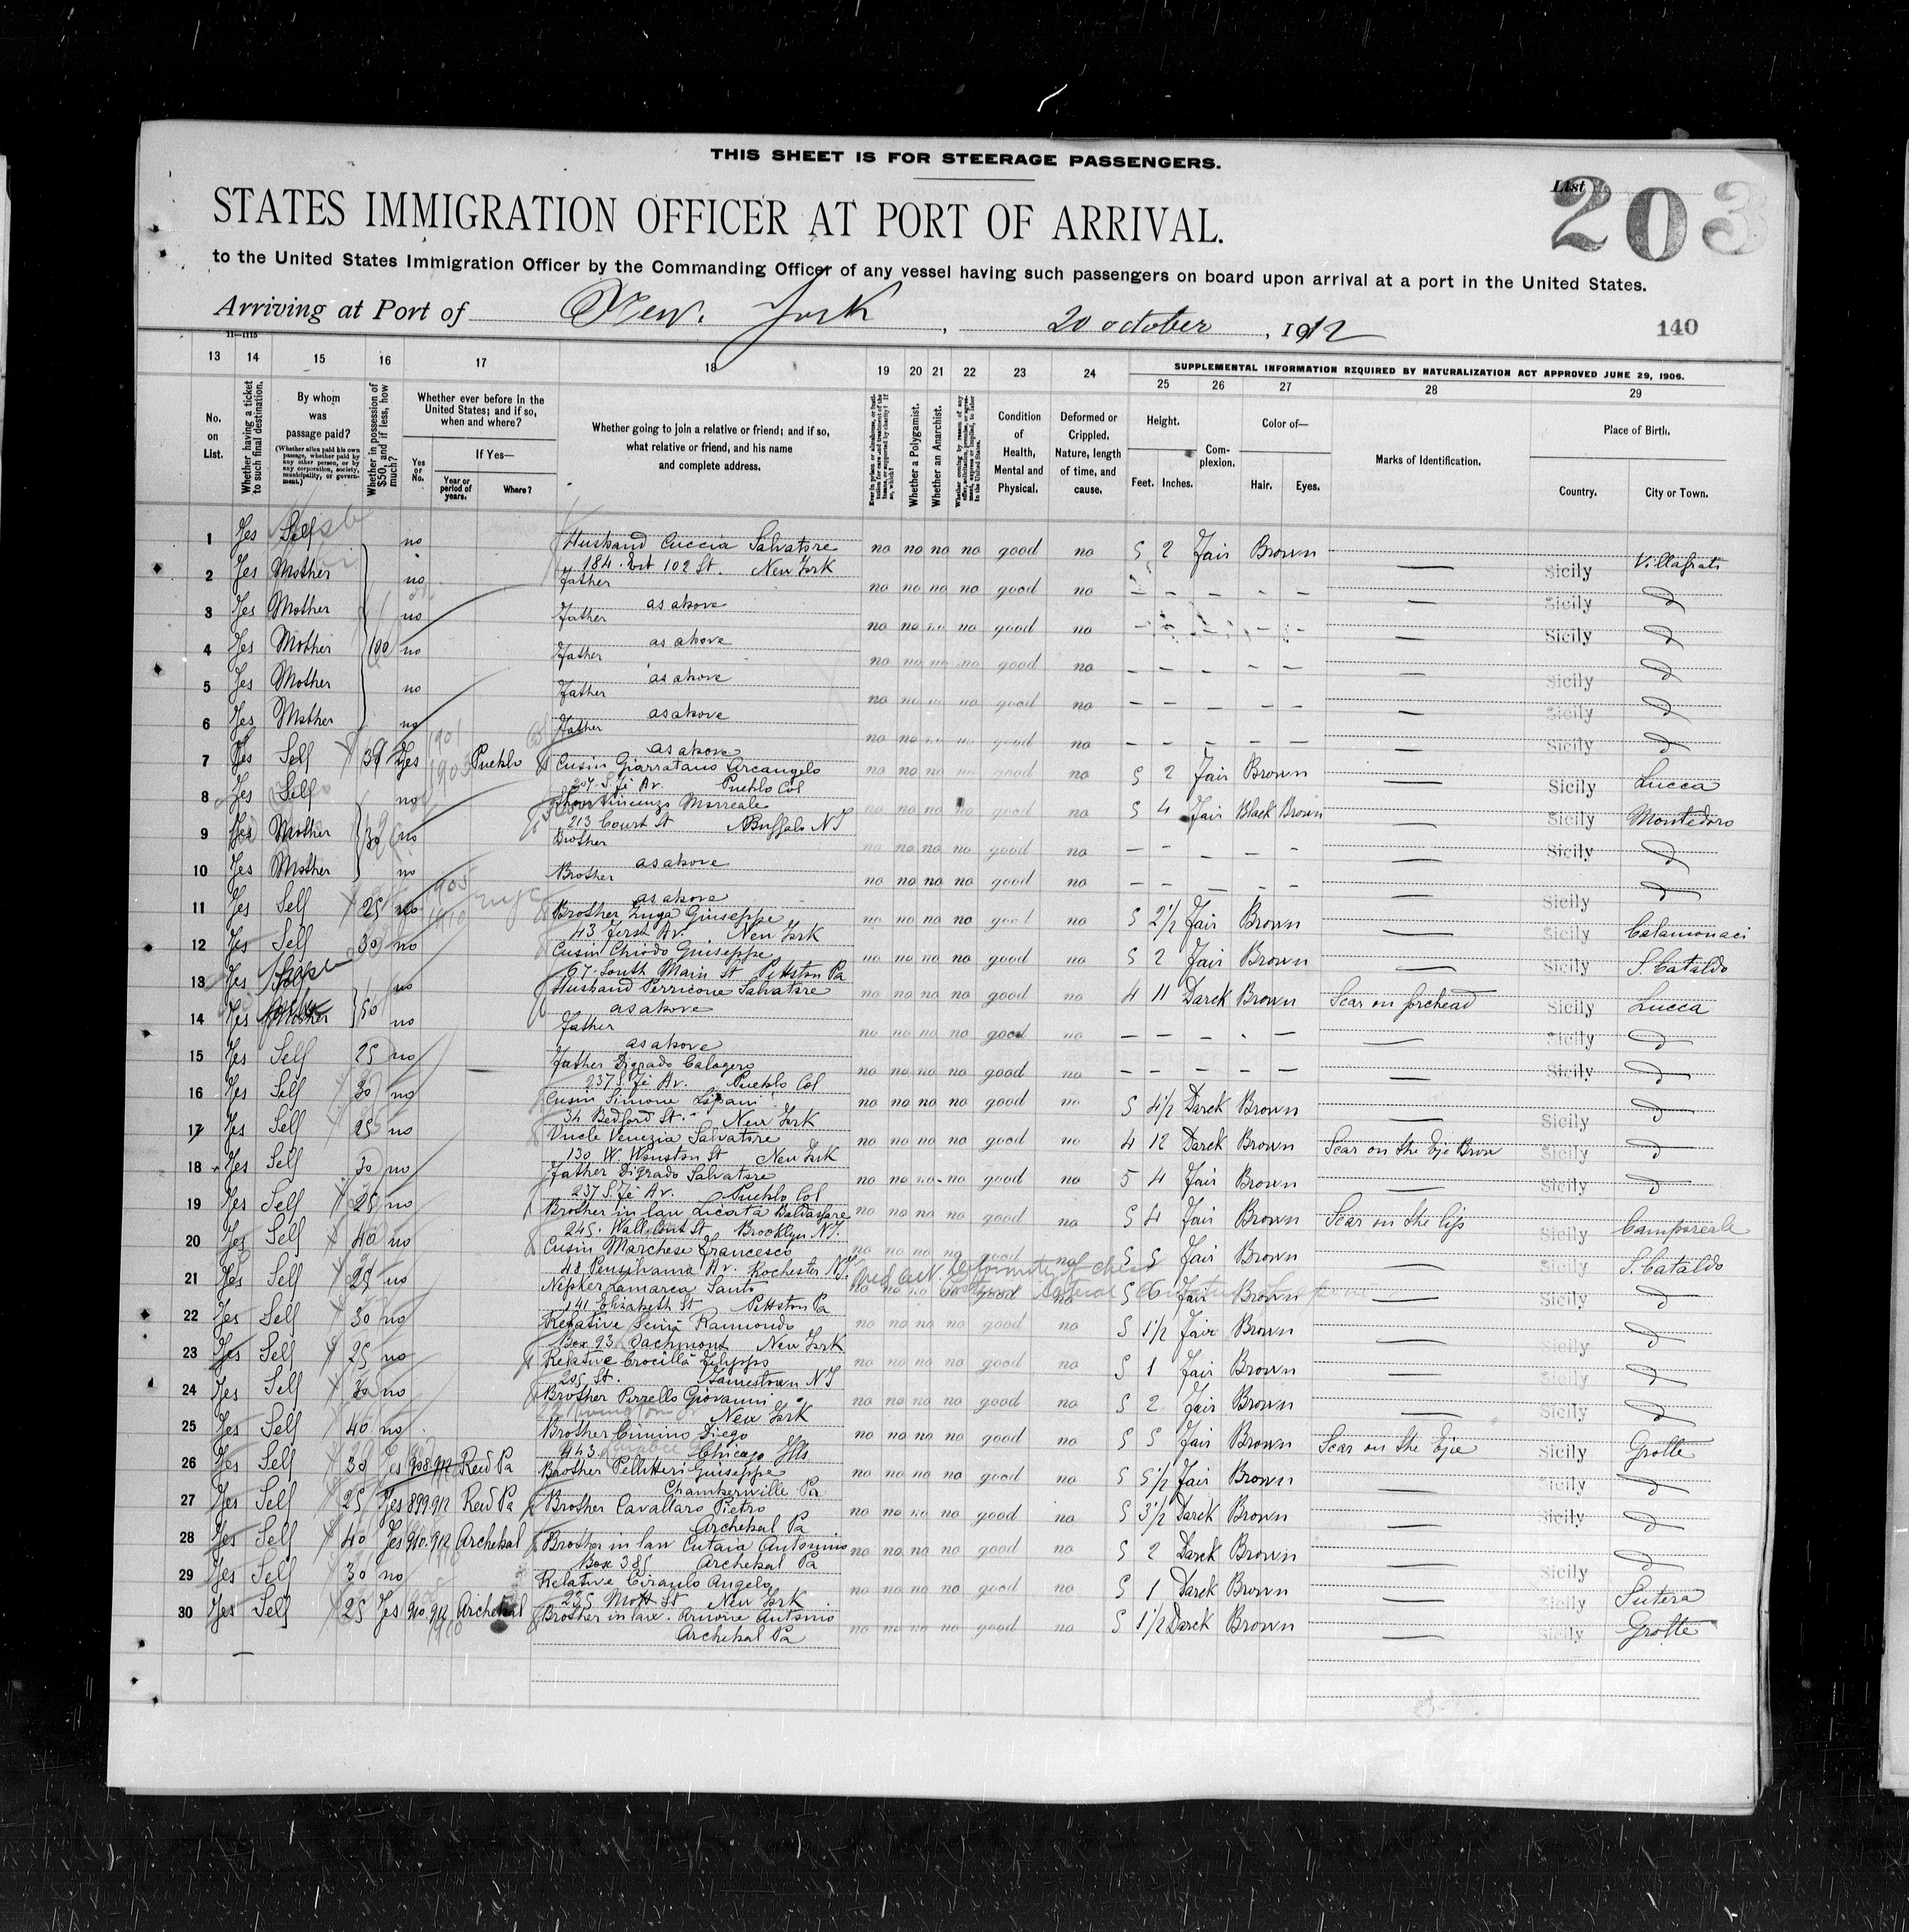 THIS SHEET IS FOR STEERAGE PASSENGERS.
List 203
STATES IMMIGRATION OFFICER AT PORT OF ARRIVAL.
to the United States Immigration Officer by the Commanding Officer of any vessel having such passengers on board upon arrival at a port in the United States.
Arriving at Port of New York, 20 october, 1912
140
11—1115
13 14 15 16 17 18 19 20 21 22 23 24 SUPPLEMENTAL INFORMATION REQUIRED BY NATURALIZATION ACT APPROVED JUNE 29, 1906.
25 26 27 28 29
No. on List.
Whether having a ticket to such final destination.
By whom was passage paid?
(Whether alien paid his own passage, whether paid by any other person, or by any corporation, society, municipality, or government.)
Whether in possession of $50, and if less, how much?
Whether ever before in the United States; and if so, when and where?
Yes or No.
If Yes—
Year or period of years.
Where?
Whether going to join a relative or friend; and if so, what relative or friend, and his name and complete address.
Whether a Polygamist.
Whether an Anarchist.
Condition of Health, Mental and Physical.
Deformed or Crippled. Nature, length of time, and cause.
Height.
Feet. Inches.
Complexion.
Color of—
Hair. Eyes.
Marks of Identification.
Place of Birth.
Country. City or Town.
1 Yes Self no Husband Cuccia Salvatore no no no no good no 5 2 Fair Brown — Sicily Villafrati
184 102 St. New York
2 Yes Mother no Father no no no no good no – – – – – — Sicily D
as above
3 Yes Mother no Father no no no no good no — Sicily D
as above
4 Yes Mother 100 no Father no no no no good no – – – – – — D
as above
5 Yes Mother no Father no no no no good no – – – – – — Sicily D
as above
6 Yes Mother no Father no no no no good no – – – – – — Sicily D
as above
7 Yes Self 30 Yes 1901 1903 Pueblo Cusin Giarratano Arcangelo no no no no good no 5 2 Fair Brown Sicily Lucca
207 S. Fè Av. Pueblo Col
8 Yes Self no Vincenzo Morreale no no no no good no 5 4 Fair Black Brown — Sicily Montedoro
213 Court St Buffalo NY
9 Yes Mother 30 no Brother no no no no good no – – – – – — Sicily D
as above
10 Yes Mother no Brother no no no no good no – – – – – — Sicily D
as above
11 Yes Self 25 no 1905 1910 Brother Giuseppe no no no no good no 5 2 1/2 Fair Brown — Sicily Calamonaci
43 First Av. New York
12 Yes Self 30 no Cusin Chiodo Giuseppe no no no no good no 5 2 Fair Brown — Sicily S. Cataldo
67 South Main St Pittston Pa
13 Yes no Husband Perricone Salvatore no no no no good no 4 11 Darck Brown Scar on forchead Sicily Lucca
as above
14 Yes Mother 50 no Father no no no no good no – – – – – — Sicily D
as above
15 Yes Self 25 no Father Digrado Calogero no no no no good no – – – – – — Sicily D
237 S. Fè Av. Pueblo Col
16 Yes Self 30 no Cusin Simone Lipani no no no no good no 5 4 1/2 Darck Brown — Sicily D
34 Bedford St. New York
17 Yes Self 25 no Uncle Venezia Salvatore no no no no good no 4 12 Darck Brown Scar on the Eje Brow Sicily D
130 W. Houston St New York
18 Yes Self 30 no Father Digrado Salvatore no no no no good no 5 4 Fair Brown — Sicily D
237 S. Fè Av. Pueblo Col
19 Yes Self 25 no Brother in law Licata Baldassare no no no no good no 5 4 Fair Brown Scar on the lip Sicily Camporeale
245 St Brooklyn NY.
20 Yes Self 40 no Cusin Marchese Francesco no no no no good no 5 5 Fair Brown — Sicily S. Cataldo
48 Pensilvania Av. Rochester NY
21 Yes Self 25 no Lamarca Santo no no no good no 5 6 Fair Brown — D
Deformity of chest
141 Elizabeth St Pittston Pa
22 Yes Self 30 no Relative Raimondo no no no no good no 5 1 1/2 Fair Brown — Sicily D
Box 93 New York
23 Yes Self 25 no Relative Crocillà no no no no good no 5 1 Fair Brown — Sicily D
205 St. Jamestown NY
24 Yes Self 30 no Brother Pirrello Giovanni no no no no good no 5 2 Fair Brown — Sicily D
New York
25 Yes Self 40 no Brother Cimino Diego no no no no good no 5 5 Fair Brown Scar on the Eje Sicily Grotte
443 Chicago Ills
26 Yes Self 30 Yes 908.912 Reed Pa Brother Pellitteri Giuseppe no no no no good no 5 5 1/2 Fair Brown — Sicily D
Pa
27 Yes Self 25 Yes 899 912 Reed Pa Brother Cavallaro Pietro no no no no good no 5 3 1/2 Darck Brown — Sicily D
Archebal Pa
28 Yes Self 40 Yes 910.912 Archebal Brother in law Cutaia Antonino no no no no good no 5 2 Darck Brown — Sicily D
Box 385 Archebal Pa
29 Yes Self 30 no Relative Ciraulo Angelo no no no no good no 5 1 Darck Brown — Sicily Sutera
235 Mott St New York
30 Yes Self 25 Yes 910.912 Archebal Brother in law Antonio no no no no good no 5 1 1/2 Darck Brown — Sicily Grotte
Archebal Pa